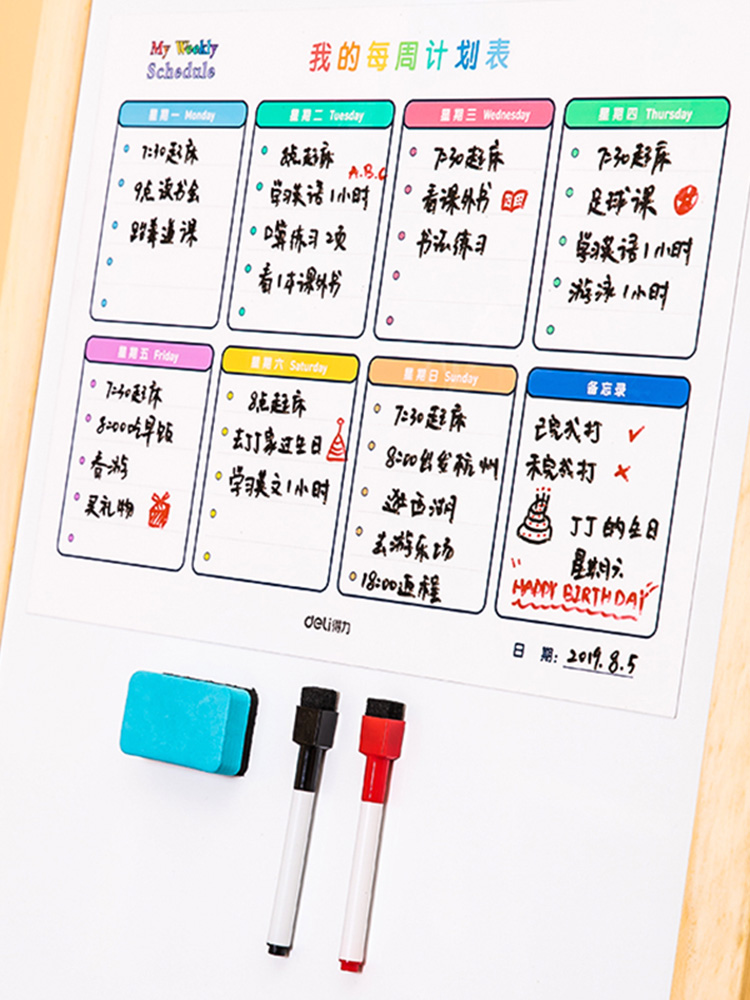 My Weekly
Schedule
我的每周计划表
星期一 Monday
7:30起床
9点读书会
跆拳道课
星期二 Tuesday
8点起床
A.B.C
学习英语1小时
口算练习2项
看1本课外书
星期三 Wednesday
7:30起床
看课外书
书法练习
星期四 Thursday
7:30起床
足球课
学习英语1小时
游泳1小时
星期五 Friday
7:30起床
8:00吃早饭
春游
买礼物
星期六 Saturday
8点起床
去丁丁家过生日
学习英文1小时
星期日 Sunday
7:30起床
8:00出发杭州
逛西湖
去游乐场
18:00返程
备忘录
已完成打 ✓
未完成打 ×
丁丁的生日
星期六
HAPPY BIRTHDAY
deli得力
日 期: 2019.8.5